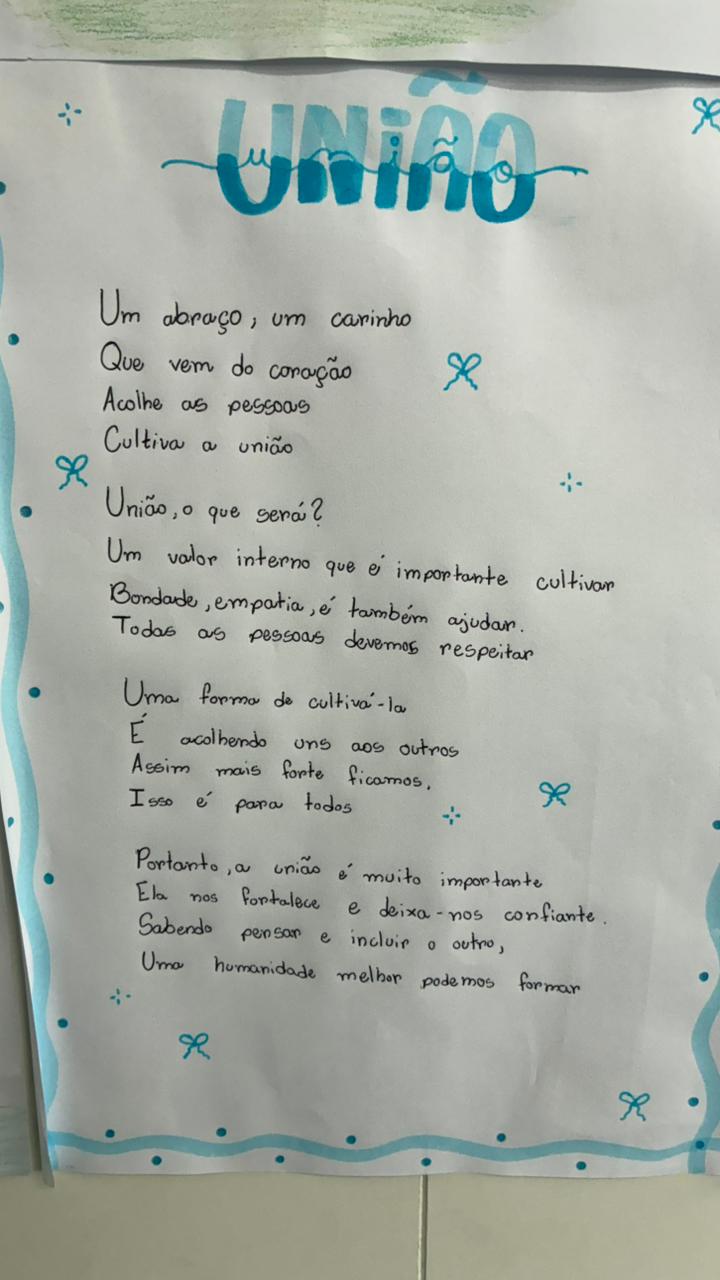 UNIÃO
união
Um abraço, um carinho
Que vem do coração
Acolhe as pessoas
Cultiva a união
União, o que será?
Um valor interno que é importante cultivar
Bondade, empatia, é também ajudar.
Todas as pessoas devemos respeitar
Uma forma de cultivá-la
É acolhendo uns aos outros
Assim mais forte ficamos,
Isso é para todos
Portanto, a união é muito importante
Ela nos fortalece e deixa-nos confiante.
Sabendo pensar e incluir o outro,
Uma humanidade melhor podemos formar